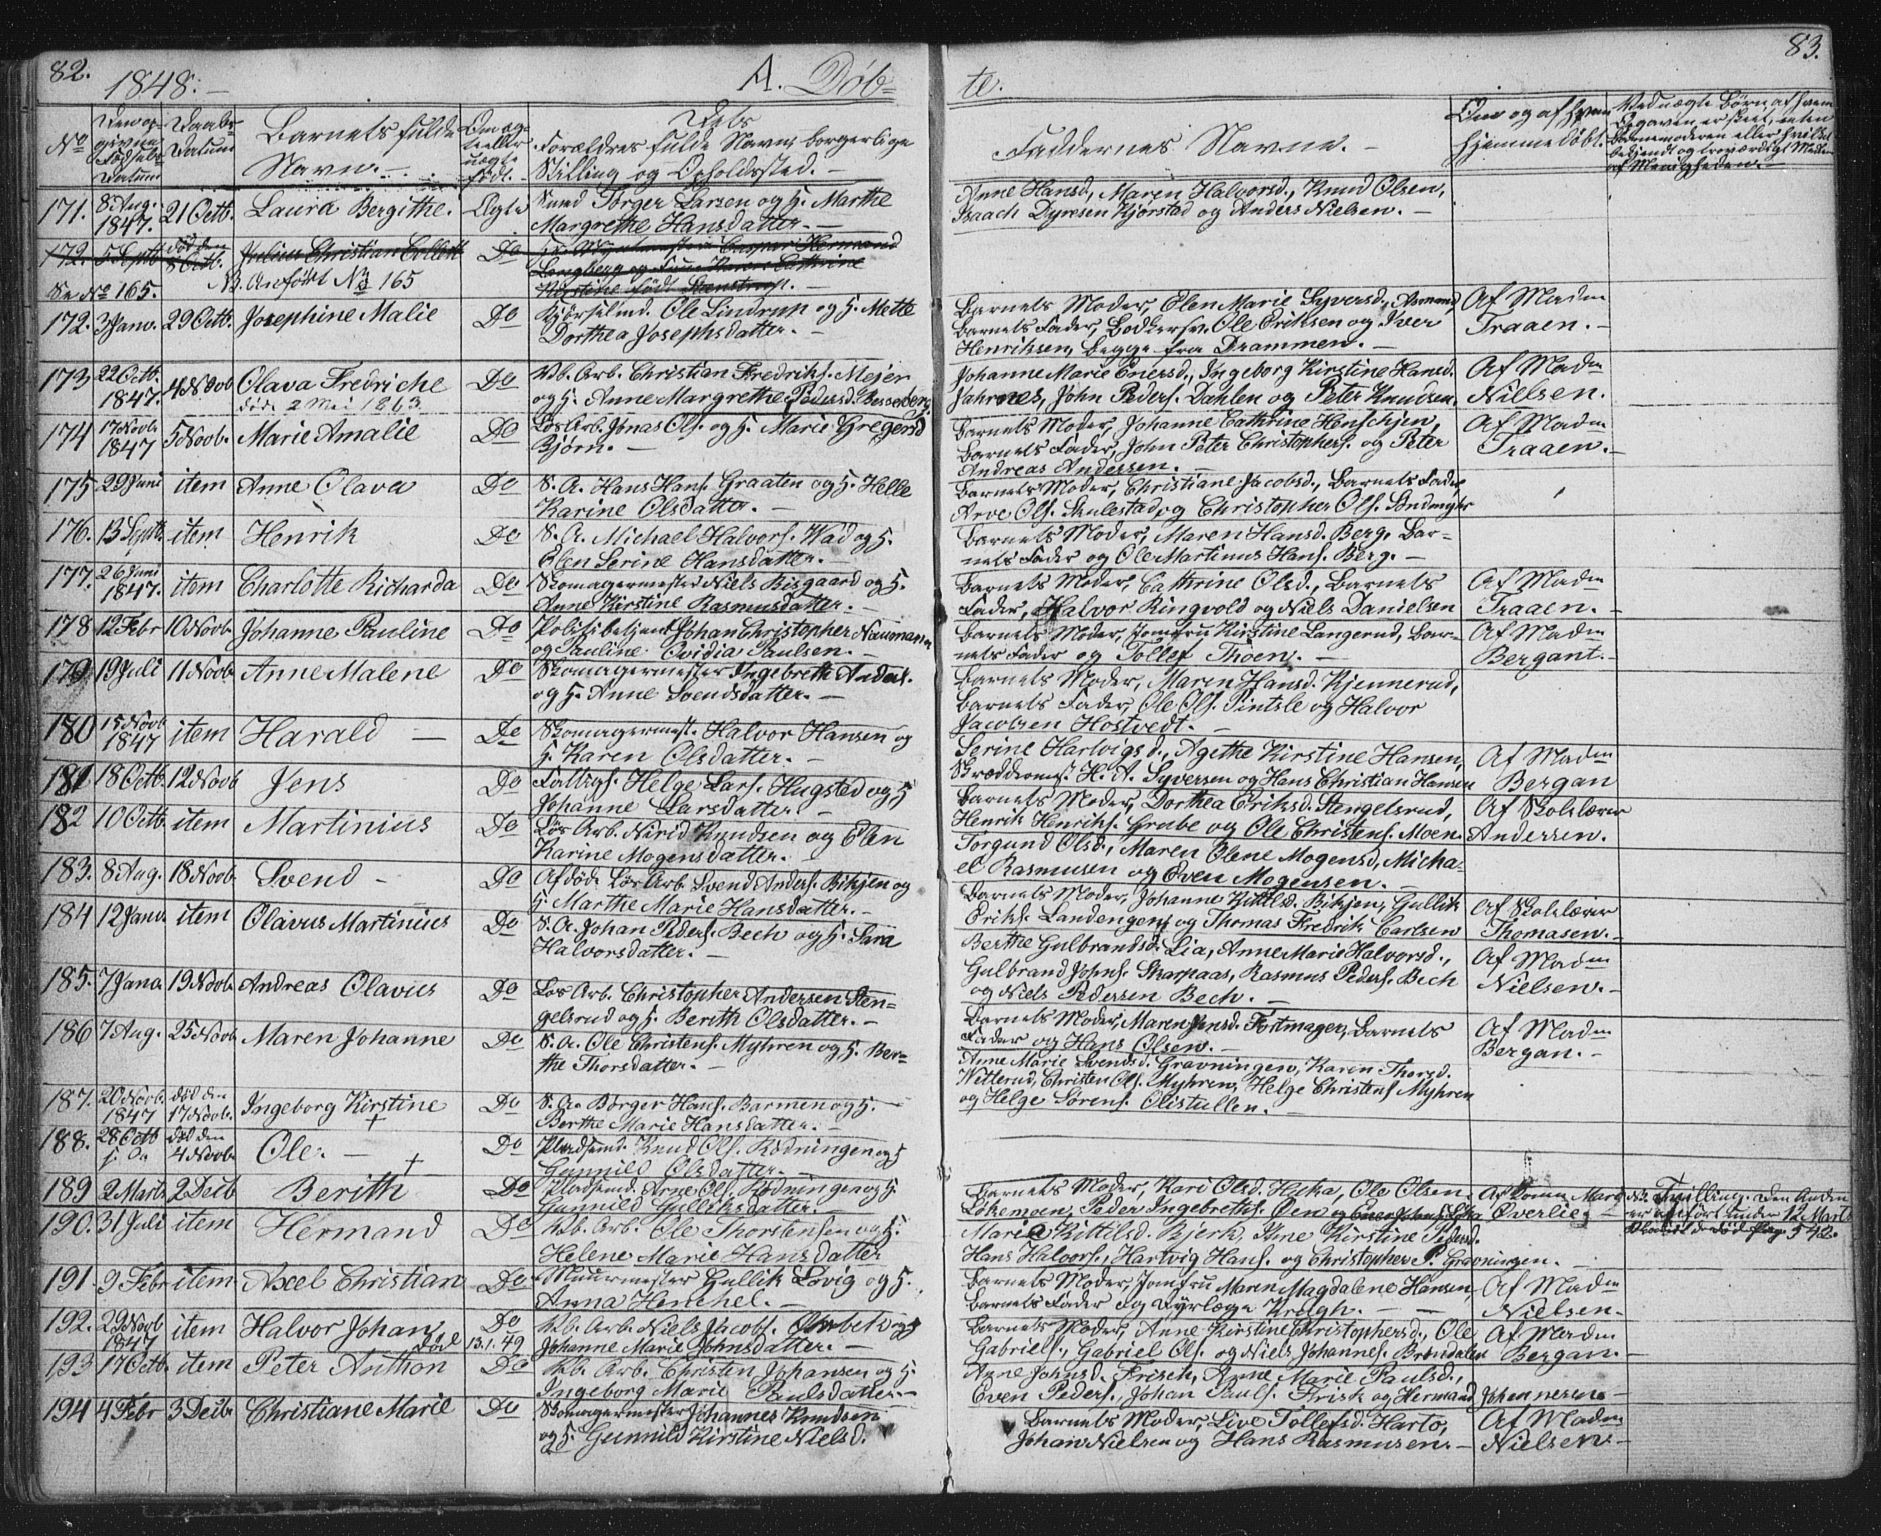 82.
1848.
A. Døb-
No
Datum
Daabs
Datum
Barnets fulde
Navn.
Forældres fulde Navn, borgerlige
Stilling og Opholdssted.
171. 8. Aug. 1847. 21 Octb. Laura Bergithe. Ægte Torger Larsen og H. Marthe
Margrethe Hansdatter.
172. 5 Septb død den 8 Octb. Julius Christian Collett Do Caspar Hermand
Langberg og Frue Cathrine
Se No 165. NB. Anført No 165 Kirstine født
172. 3 Janv. 29 Octb. Josephine Malie Do Ole Lindrup og H. Mette
Dorthea Josephsdatter.
173 22 Octb. 1847. 4 Novb Olava Fredriche Do Arb. Christian Fredriks. Mejer
død 2 Mai 1863 og H. Anne Margrethe Pedersd.
174 17 Novb. 1847 5 Novb. Marie Amalie Do Løs Arb. Jonas Ols. og H. Marie Gregersd
Bjørn.
175 29 Juni item Anne Olava Do S. A. Hans Hans. Graaten og H. Helle
Karine Olsdatter.
176. 13 Septb. item Henrik Do S. A. Michael Halvors. Wad og H.
Elen Serine Hansdatter.
177. 26 Juni 1847. item Charlotte Richarda Do Skomagermester Niels Bisgaard og H.
Anne Kirstine Rasmusdatter.
178 12 Febr 10 Novb. Johanne Pauline Do Politibetjent Johan Christopher Naumann
og Pauline Ovidia Paulsen.
179 19 Juli 11 Novb. Anne Malene Do Skomagermester Ingebreth Anders.
og H. Anne Svendsdatter.
180 15 Novb 1847 item Harald Do Skomagermest. Halvor Hansen og
H. Karen Olsdatter.
181 18 Octb. 12 Novb Jens Do Helge Lars. Hugsted og H
Johanne Larsdatter.
182 10 Octb. item Martinius Do Løs Arb. Nirid Knudsen og Elen
Karine Mogensdatter.
183. 8 Aug. 18 Novb. Svend Do Afdøde Løs Arb. Svend Anders. Bikjen og
H. Marthe Marie Hansdatter.
184 12 Janv. item Olavus Martinius Do S. A. Johan Peders. Bech og H. Sara
Halvorsdatter.
185. 7 Janv. 19 Novb. Andreas Olavus Do Løs Arb. Christopher Andersen Sten-
gelsrud og H. Berith Olsdatter.
186 7 Aug. 25 Novb. Maren Johanne Do S. A. Ole Christens. Myhren og H. Ber-
the Thorsdatter.
187. 20 Novb. 1847 død den 17 Novb. Ingeborg Kirstine Do S. A. Børger Hans. Barmen og H.
Berthe Marie Hansdatter.
188. 28 Octb død den 4 Novb. Ole. Do Pladsmd. Knud Ols. Rødningen og H
Gunnild Olsdatter.
189 2 Marts 2 Decb Berith Do Pladsmd. Arne Ols. Rødningen og H.
Gunnild Gulliksdatter.
190. 31 Juli item Hermand Do Arb. Ole Thorstensen og H.
Helene Marie Hansdatter
191 9 Febr item Axel Christian Do Muurmester Gullik Løvig og H.
Anna Henchel.
192. 29 Novb 1847 item Halvor Johan Do Arb. Niels Jacobs. og H
Død 13.1.49 Johanne Marie Johnsdatter.
193 17 Octb. item Peter Anthon Do Arb. Christen Johansen og H
Ingeborg Marie Paulsdatter.
194 4 Febr 3 Decb. Christiane Marie Do Skomagermester Johannes Knudsen
og H. Gunnild Kirstine Nielsd.
83.
te.
Faddernes Navne.
Om og af hvem
hjemmedøbt.
Anne Hansd., Maren Halvorsd., Knud Olsen,
Isaach Dyresen Kjørstad og Anders Nielsen.
Barnets Moder, Elen Marie Syversd., Af Madm
Barnets Fader, Bødkersv. Ole Eriksen og Iver Traaen.
Henriksen, begge fra Drammen.
Johanne Marie Enersd., Ingeborg Kirstine Hansd. Af Madm
Jahrnes, John Peders. Dahlen og Peter Knudsen. Nielsen.
Barnets Moder, Johanne Cathrine Henschjen, Af Madm
Barnets Fader, John Peter Christophers. og Peter Traaen.
Andreas Andersen.
Barnets Moder, Christiane Jacobsd., Barnets Fader,
Arve Ols. Skulestad og Christopher Ols.
Barnets Moder, Maren Hansd. Berg, Bar-
nets Fader og Ole Martinus Hans. Berg.
Barnets Moder, Cathrine Olsd., Barnets Af Madm
Fader, Halvor Ringvold og Niels Danielsen Traaen.
Barnets Moder, Jomfru Kirstine Langerud, Bar- Af Madm
nets Fader og Tollef Thoen. Bergant.
Barnets Moder, Maren Hansd. Kjennerud,
Barnets Fader, Ole Ols. Pintsle og Halvor
Jacobsen Hostvedt.
Serine Hartvigsd., Agethe Kirstine Hansen, Af Madm
Skræddermest. H. A. Syversen og Hans Christian Hansen Bergan
Barnets Moder, Dorthea Eriksd. Stengelsrud, Af Skolelærer
Henrik Henriks. Grube og Ole Christens. Moen. Andersen.
Torgund Olsd., Maren Olene Mogensd, Micha-
el Rasmusen og Even Mogensen.
Barnets Moder, Johanne Kittilsd. Bikjen, Gullik Af Skolelærer
Eriks. Landengen og Thomas Fredrik Carlsen Thomasen.
Berthe Gulbrandsd. Lia, Anne Marie Halvorsd., Af Madm
Gulbrand Johns. Skarpaas, Rasmus Peders. Bech Nielsen.
og Niels Pedersen Bech.
Barnets Moder, Maren Jensd. Fortmager, Barnets Af Madm
Fader og Hans Olsen. Bergan.
Anne Marie Svendsd. Gravningen, Karen Thorsd.
Witterud, Christen Ols. Myhren, Helge Christens. Myhren
og Helge Sørens. Olistullen.
Barnets Moder, Kari Olsd. Huka, Ole Olsen
Løkemoen, Peder Ingebreths. Øen og Øverlie. NB. Tvilling. Den Anden
er anført under 12 Marts
Marie Kittilsd. Bjerk, Anne Kirstine Pedersd.
Hans Halvors., Hartvig Hans. og Christopher P. Gravningen.
Barnets Moder, Jomfru Maren Magdalene Hansen, Af Madm
Barnets Fader og Fyrlæge Kragh. Nielsen.
Barnets Moder, Anne Kirstine Christophersd., Ole Af Madm
Gabriels., Gabriel Ols. og Niels Johannes. Brøndalen Bergan.
Anne Johnsd. Frisck, Anne Marie Paulsd.,
Even Peders., Johan Pauls. Frisk og Hermand Johannesen.
Barnets Moder, Live Tollefsd. Harto, Af Madm
Johan Nielsen og Hans Rasmusen. Nielsen.